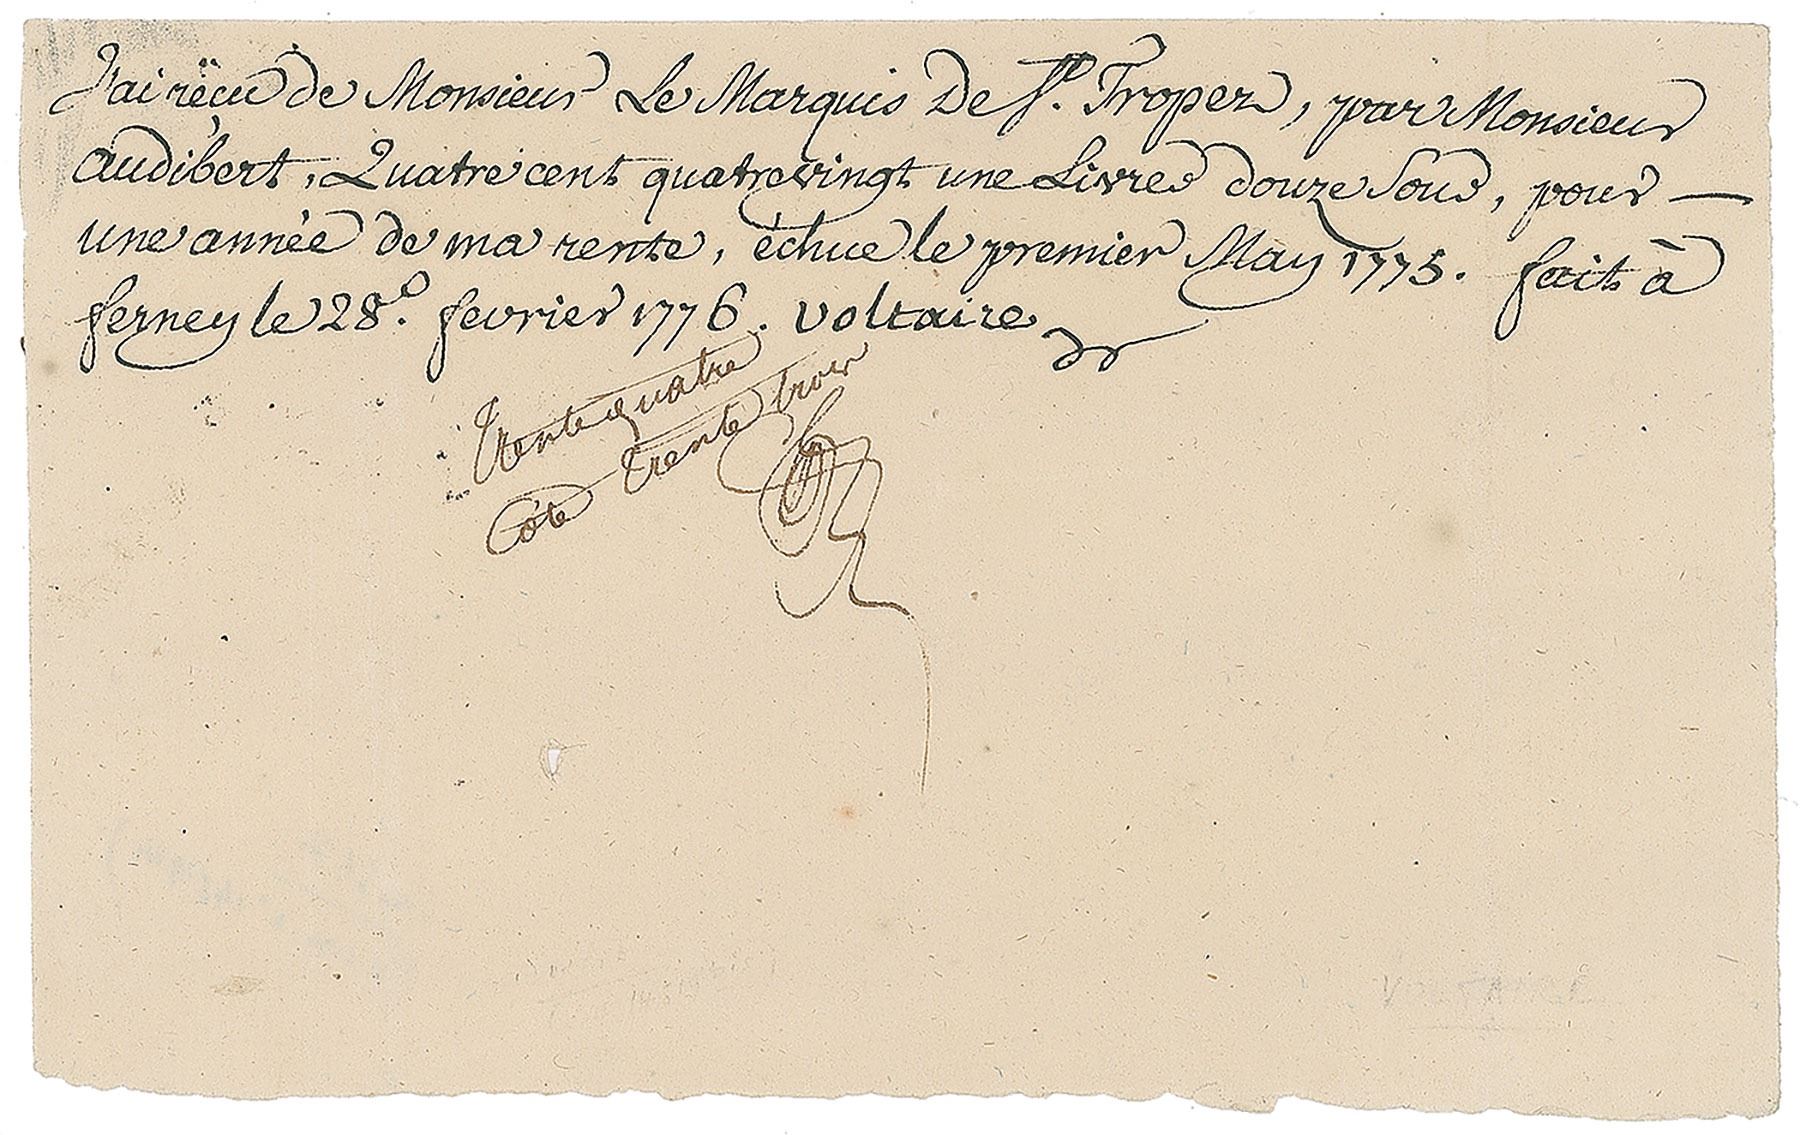 J'ai rëçu de Monsieur Le Marquis De St. Tropez, par Monsieur
Audibert, Quatre cent quatre vingt une Livres douze Sous, pour —
une année de ma rente, échue le premier May 1775. fait à
ferney le 28e. fevrier 1776. Voltaire
Trente quatre
Cote trente trois
VOLTAIRE